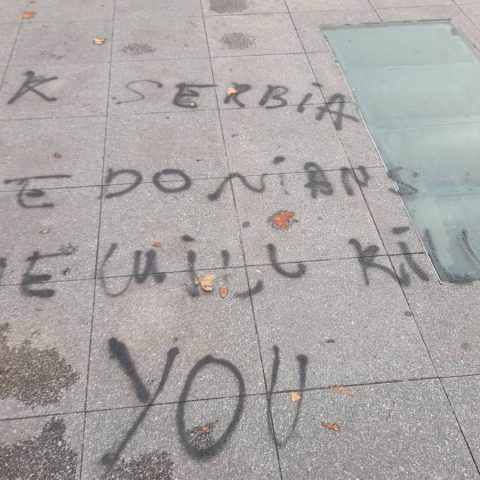 K SERBIA
EDONiANS
E WiLL Kil
YOU